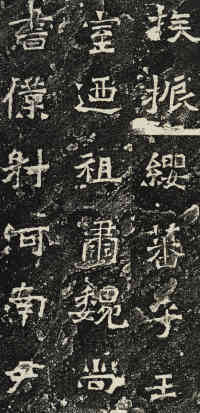 族振纓蕃乎王
室迺祖肅魏尚
書僕射河南尹